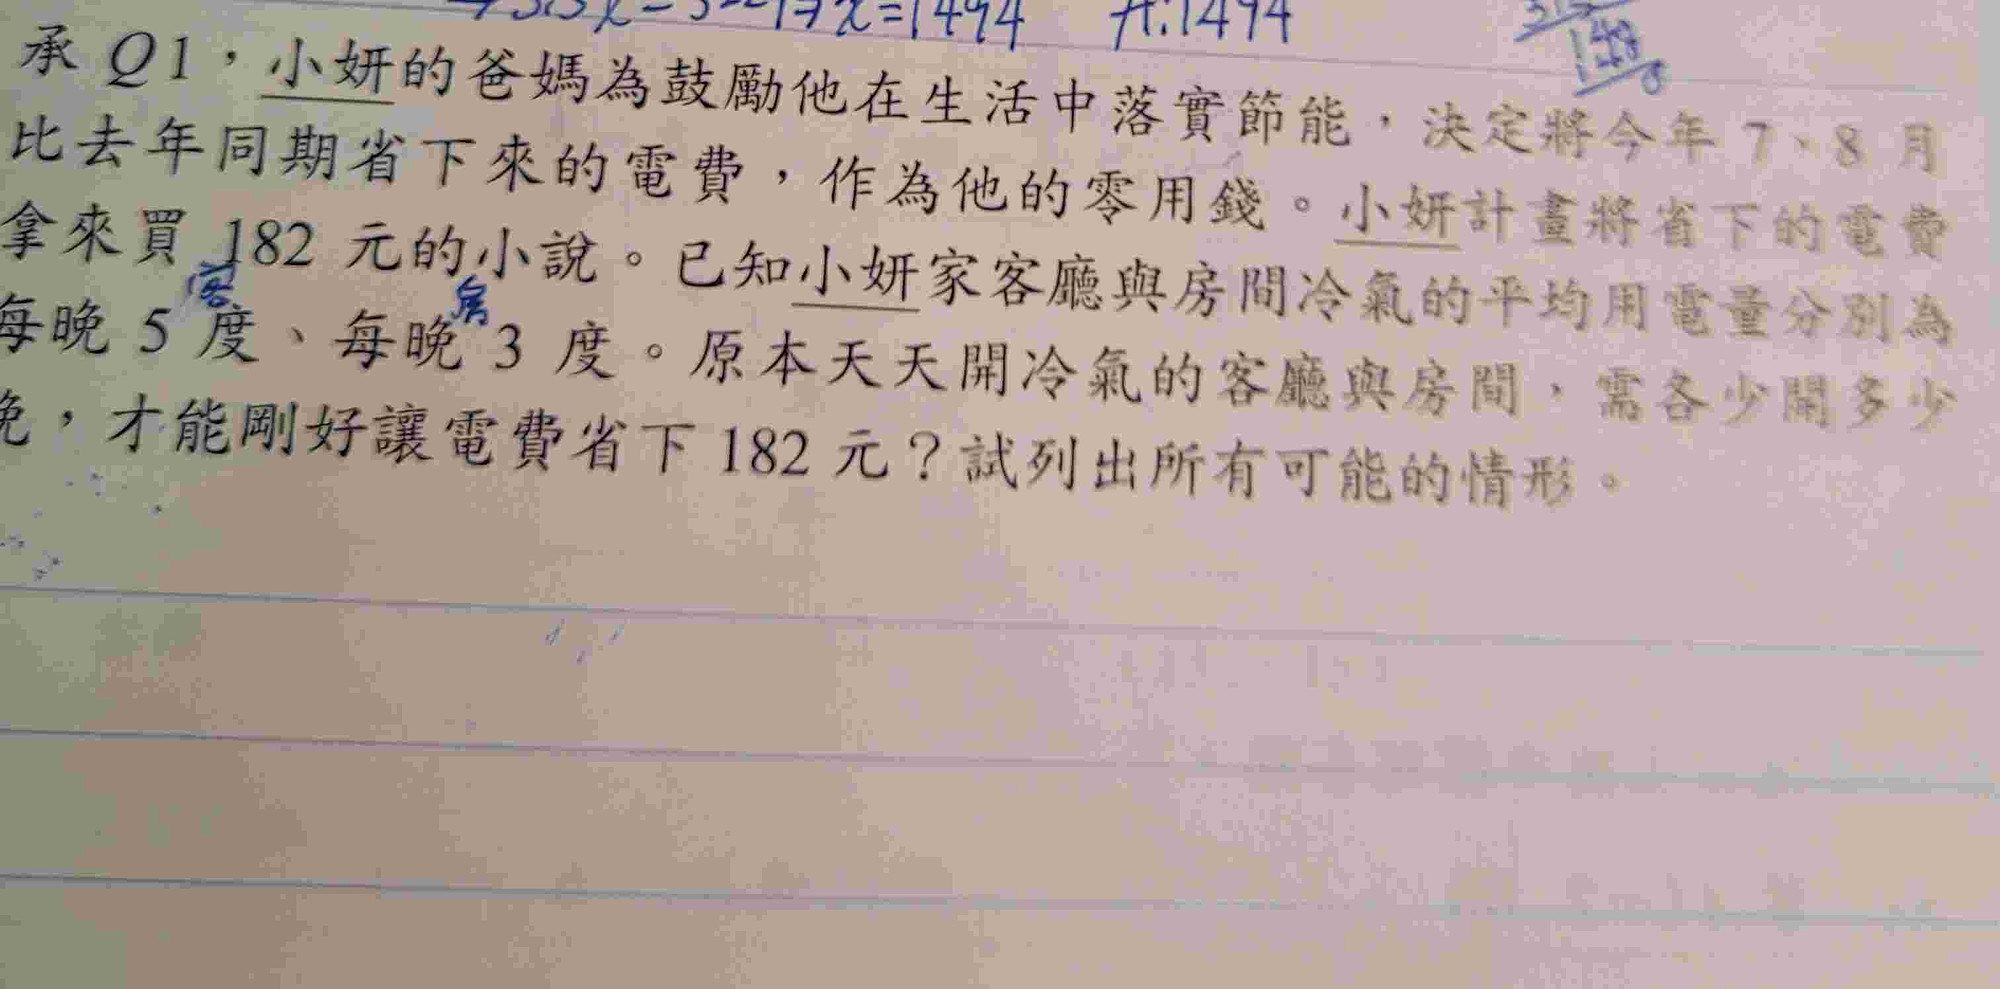 x=1494 A:1494
承 Q1，小妍的爸媽為鼓勵他在生活中落實節能，決定將今年 7、8 月
比去年同期省下來的電費，作為他的零用錢。小妍計畫將省下的電費
拿來買 182 元的小說。已知小妍家客廳與房間冷氣的平均用電量分別為
客 房
每晚 5 度、每晚 3 度。原本天天開冷氣的客廳與房間，需各少開多少
晚，才能剛好讓電費省下 182 元？試列出所有可能的情形。